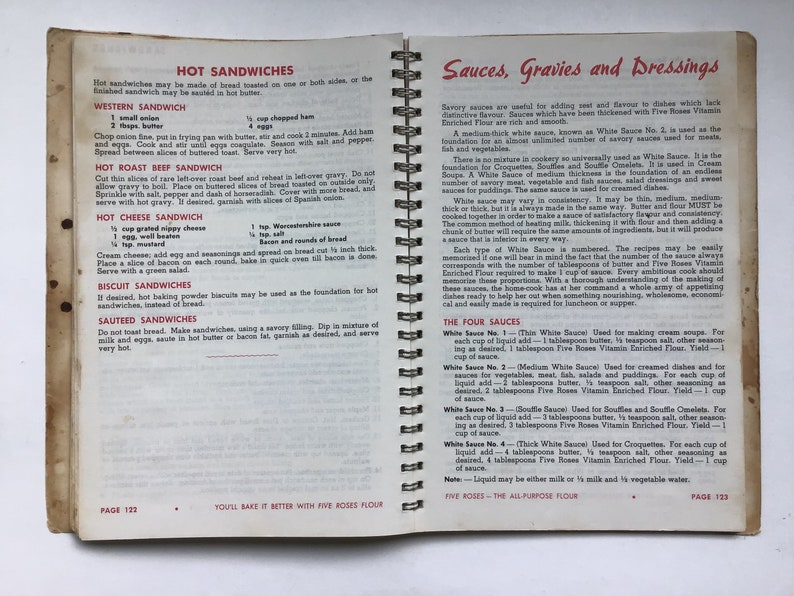 HOT SANDWICHES
Hot sandwiches may be made of bread toasted on one or both sides, or the
finished sandwich may be sautéd in hot butter.
WESTERN SANDWICH
1 small onion ½ cup chopped ham
2 tbsps. butter 4 eggs
Chop onion fine, put in frying pan with butter, stir and cook 2 minutes. Add ham
and eggs. Cook and stir until eggs coagulate. Season with salt and pepper.
Spread between slices of buttered toast. Serve very hot.
HOT ROAST BEEF SANDWICH
Cut thin slices of rare left-over roast beef and reheat in left-over gravy. Do not
allow gravy to boil. Place on buttered slices of bread toasted on outside only.
Sprinkle with salt, pepper and dash of horseradish. Cover with more bread, and
serve with hot gravy. If desired, garnish with slices of Spanish onion.
HOT CHEESE SANDWICH
½ cup grated nippy cheese 1 tsp. Worcestershire sauce
1 egg, well beaten ¼ tsp. salt
¼ tsp. mustard Bacon and rounds of bread
Cream cheese; add egg and seasonings and spread on bread cut ½ inch thick.
Place a slice of bacon on each round, bake in quick oven till bacon is done.
Serve with a green salad.
BISCUIT SANDWICHES
If desired, hot baking powder biscuits may be used as the foundation for hot
sandwiches, instead of bread.
SAUTEED SANDWICHES
Do not toast bread. Make sandwiches, using a savory filling. Dip in mixture of
milk and eggs, saute in hot butter or bacon fat, garnish as desired, and serve
very hot.
PAGE 122 • YOU'LL BAKE IT BETTER WITH FIVE ROSES FLOUR
Sauces, Gravies and Dressings
Savory sauces are useful for adding zest and flavour to dishes which lack
distinctive flavour. Sauces which have been thickened with Five Roses Vitamin
Enriched Flour are rich and smooth.
A medium-thick white sauce, known as White Sauce No. 2, is used as the
foundation for an almost unlimited number of savory sauces used for meats,
fish and vegetables.
There is no mixture in cookery so universally used as White Sauce. It is the
foundation for Croquettes, Souffles and Souffle Omelets. It is used in Cream
Soups. A White Sauce of medium thickness is the foundation of an endless
number of savory meat, vegetable and fish sauces, salad dressings and sweet
sauces for puddings. The same sauce is used for creamed dishes.
White sauce may vary in consistency. It may be thin, medium, medium-
thick or thick, but it is always made in the same way. Butter and flour MUST be
cooked together in order to make a sauce of satisfactory flavour and consistency.
The common method of heating milk, thickening it with flour and then adding a
chunk of butter will require the same amounts of ingredients, but it will produce
a sauce that is inferior in every way.
Each type of White Sauce is numbered. The recipes may be easily
memorized if one will bear in mind the fact that the number of the sauce always
corresponds with the number of tablespoons of butter and Five Roses Vitamin
Enriched Flour required to make 1 cup of sauce. Every ambitious cook should
memorize these proportions. With a thorough understanding of the making of
these sauces, the home-cook has at her command a whole army of appetising
dishes ready to help her out when something nourishing, wholesome, economi-
cal and easily made is required for luncheon or supper.
THE FOUR SAUCES
White Sauce No. 1 — (Thin White Sauce) Used for making cream soups. For
each cup of liquid add — 1 tablespoon butter, ½ teaspoon salt, other season-
ing as desired, 1 tablespoon Five Roses Vitamin Enriched Flour. Yield — 1
cup of sauce.
White Sauce No. 2 — (Medium White Sauce) Used for creamed dishes and for
sauces for vegetables, meat, fish, salads and puddings. For each cup of
liquid add — 2 tablespoons butter, ½ teaspoon salt, other seasoning as
desired, 2 tablespoons Five Roses Vitamin Enriched Flour. Yield — 1 cup
of sauce.
White Sauce No. 3 — (Souffle Sauce) Used for Souffles and Souffle Omelets. For
each cup of liquid add — 3 tablespoons butter, ½ teaspoon salt, other season-
ing as desired, 3 tablespoons Five Roses Vitamin Enriched Flour. Yield — 1
cup of sauce.
White Sauce No. 4 — (Thick White Sauce) Used for Croquettes. For each cup of
liquid add — 4 tablespoons butter, ½ teaspoon salt, other seasoning as
desired, 4 tablespoons Five Roses Vitamin Enriched Flour. Yield — 1 cup
of sauce.
Note: — Liquid may be either milk or ½ milk and ½ vegetable water.
FIVE ROSES — THE ALL-PURPOSE FLOUR • PAGE 123